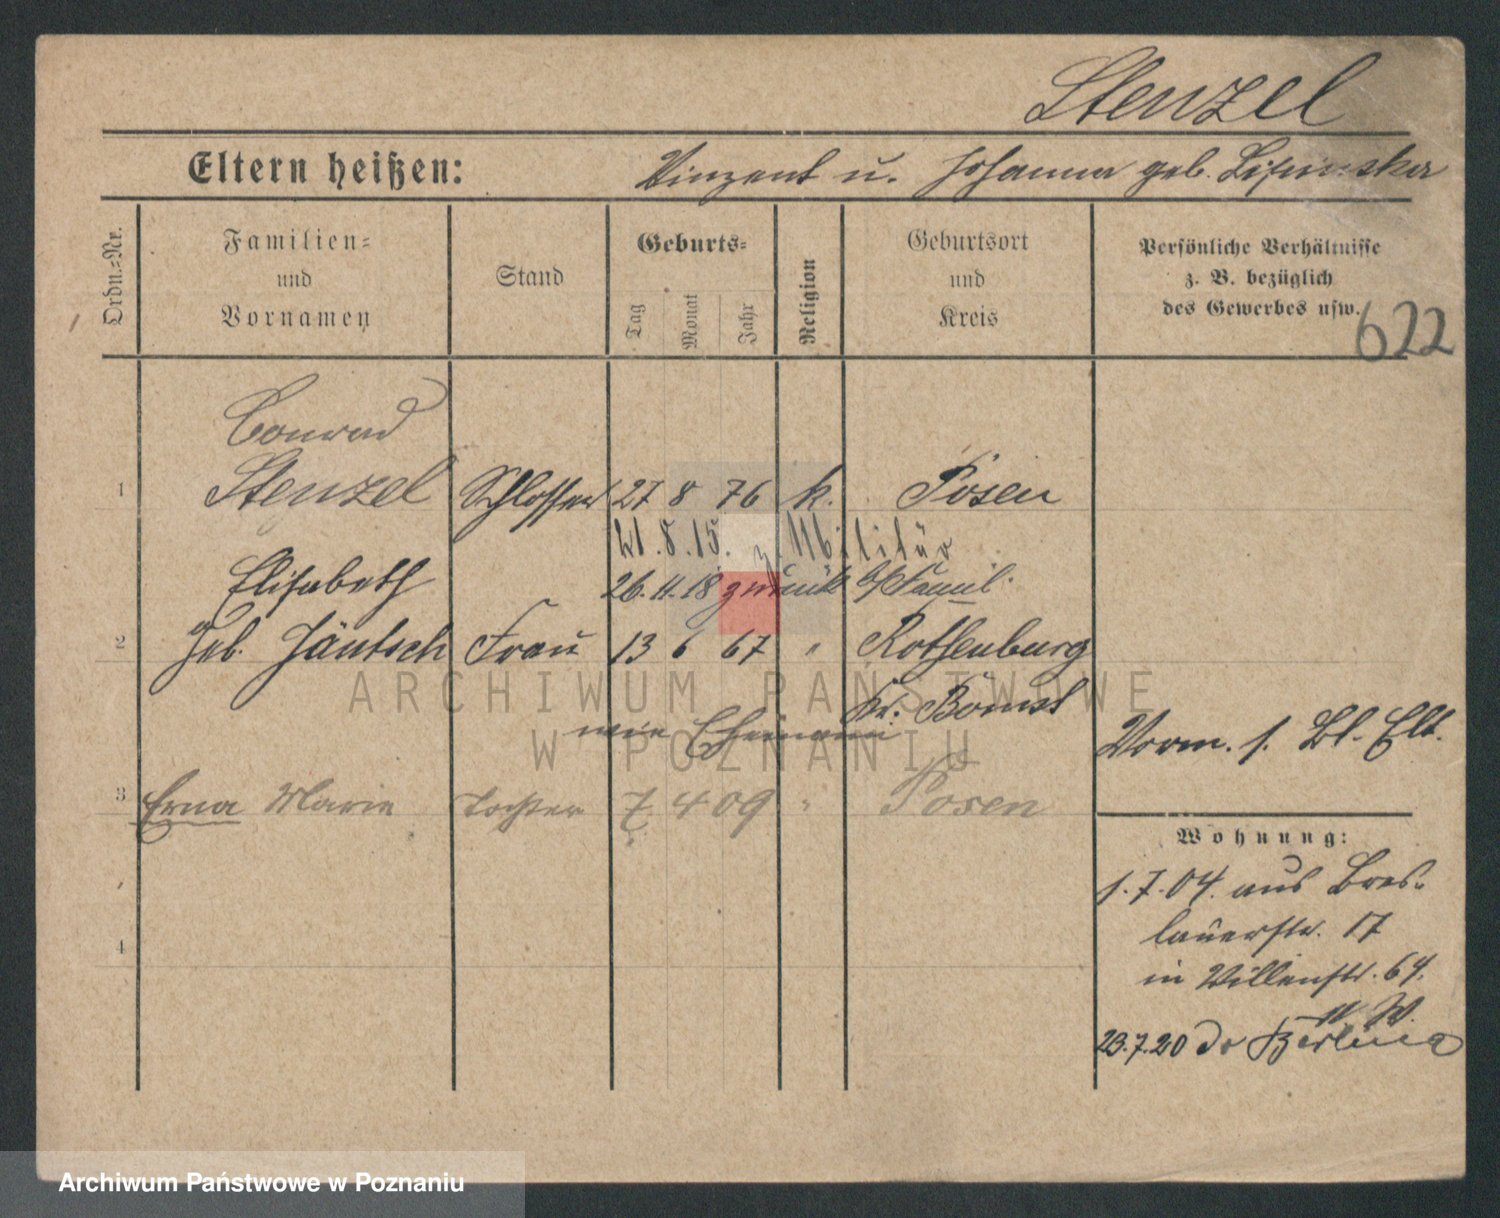 Stenzel
Eltern heißen: Vinzent u. Johanna geb. Lipinska
Ordn.=Nr.
Familien=
und
Vornamen
Stand
Geburts=
Tag
Monat
Jahr
Religion
Geburtsort
und
Kreis
Persönliche Verhältnisse
z. B. bezüglich
des Gewerbes usw.
622
Conrad
1 Stenzel Schlosser 27 8 76 k. Posen
21.8.15. z. Militär
Elisabeth 26.11.18 zurück Famil.
2 geb. Jäntsch Frau 13 6 67 " Rothenburg
Kr. Bomst
wie Ehemann
Vorm. s. Bl. Elt.
3 Erna Marie Tochter 7 4 09 " Posen
Wohnung:
1.7.04. aus Bres-
lauerstr. 17
in Villenstr. 64.
4
23.7.20 Berlin
ARCHIWUM PAŃSTWOWE
W POZNANIU
Archiwum Państwowe w Poznaniu